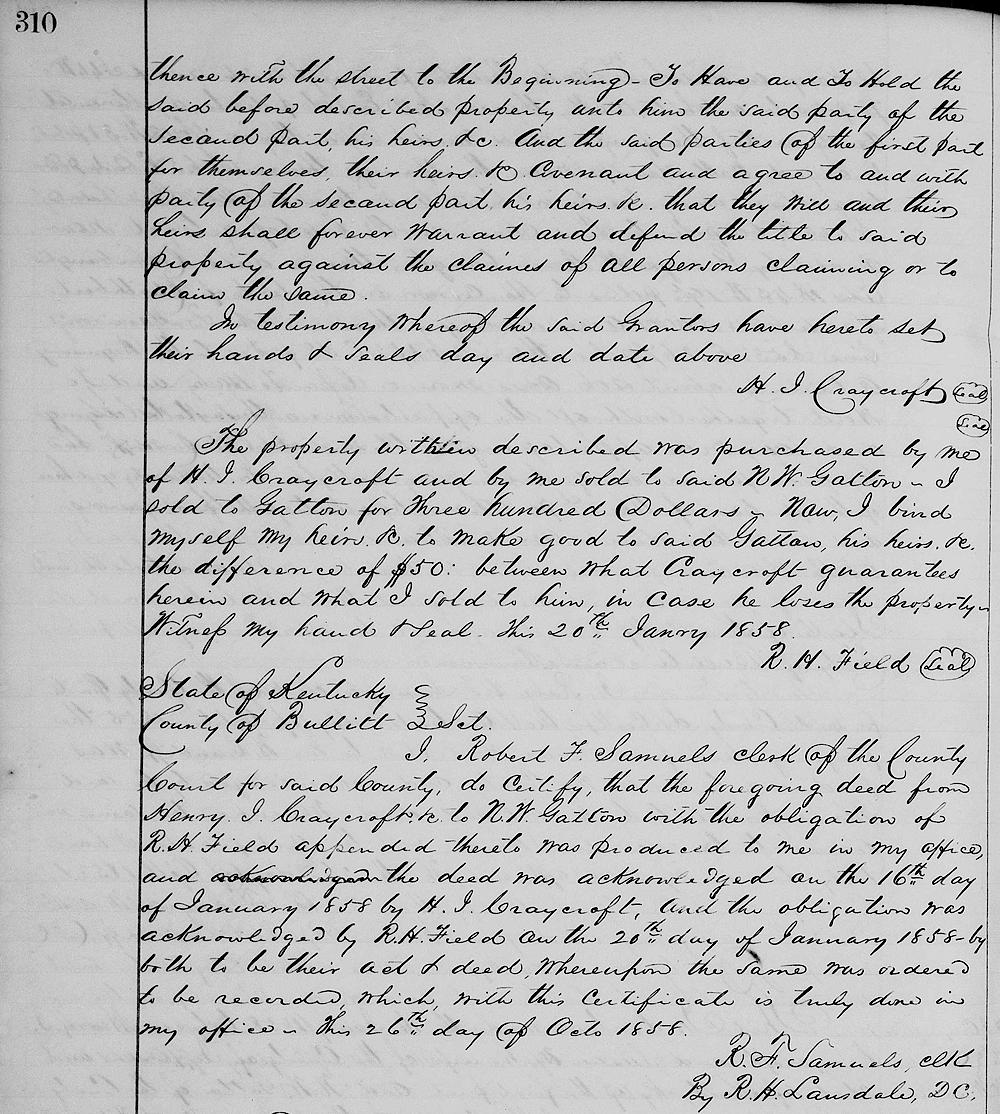 310
thence with the street to the Beginning - To Have and To Hold the
said before described property unto him the said party of the
Second Part, his heirs. &c. And the said parties of the first part
for themselves, their heirs. &c. Covenant and agree to and with
party of the second part his heirs. &c. that they will and their
heirs shall forever Warrant and defend the title to said
property against the claimes of all persons claiming or to
claim the same.
In testimony Whereof the said Grantors have hereto set
their hands & seals day and date above
H. I. Craycroft Seal
Seal
The property within described was purchased by me
of H. I. Craycroft and by me sold to said N. W. Gatton - I
sold to Gatton for Three hundred Dollars - Now, I bind
myself my heirs. &c. to make good to said Gatton, his heirs. &c.
the difference of $50: between what Craycroft guarantees
herein and what I sold to him, in case he loses the property -
Witness my hand & Seal. This 20th Janry 1858.
R. H. Field Seal
State of Kentucky
County of Bullitt Sct.
I. Robert F. Samuels clerk of the County
Court for said County, do Certify, that the foregoing deed from
Henry. I. Craycroft. &c. to N. W. Gatton with the obligation of
R. H. Field appended thereto was produced to me in my office,
and acknowledged the deed was acknowledged on the 16th day
of January 1858 by H. I. Craycroft, and the obligation was
acknowledged by R. H. Field on the 20th day of January 1858 - by
both to be their act & deed, whereupon the same was ordered
to be recorded, which, with this certificate is truly done in
my office - This 26th day of Octo 1858.
R. F. Samuels, clk
By R. H. Lansdale, DC.